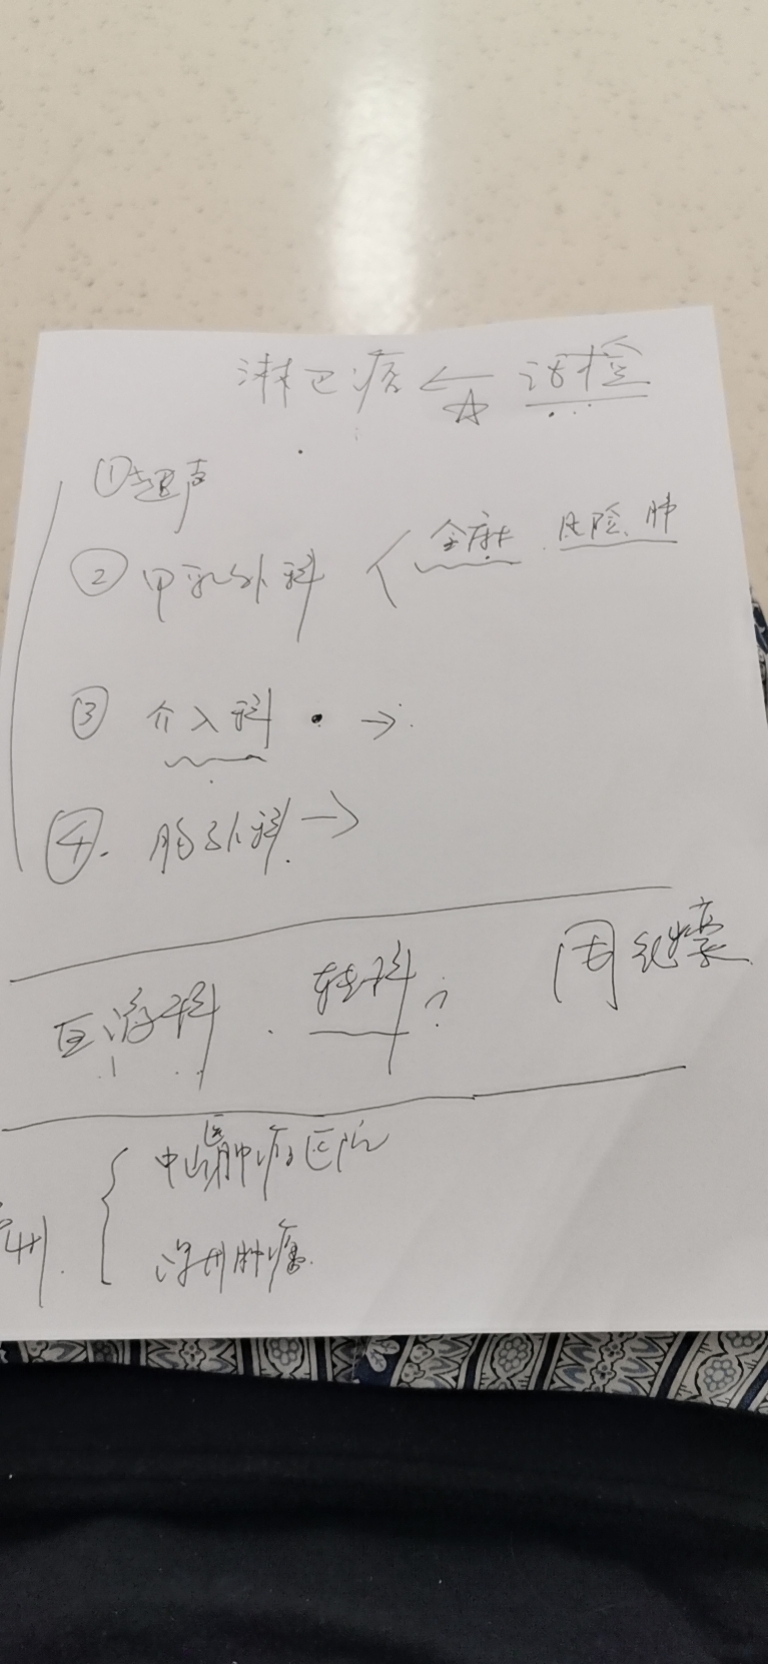 淋巴瘤 ← ☆ 活检
①超声
②甲乳外科 〈 全麻 风险 肿
③ 介入科 · →
④. 胸外科 →
血液科 . 转科? 周
中山 肿瘤医院
州. 深圳肿瘤.